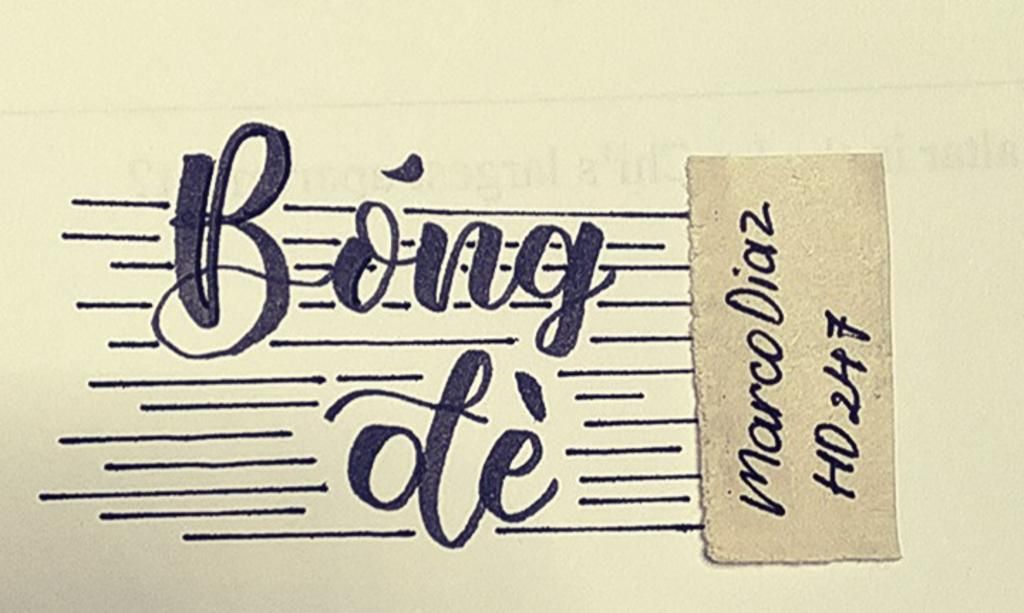 Bóng
dè
MarcoDiaz
HD247